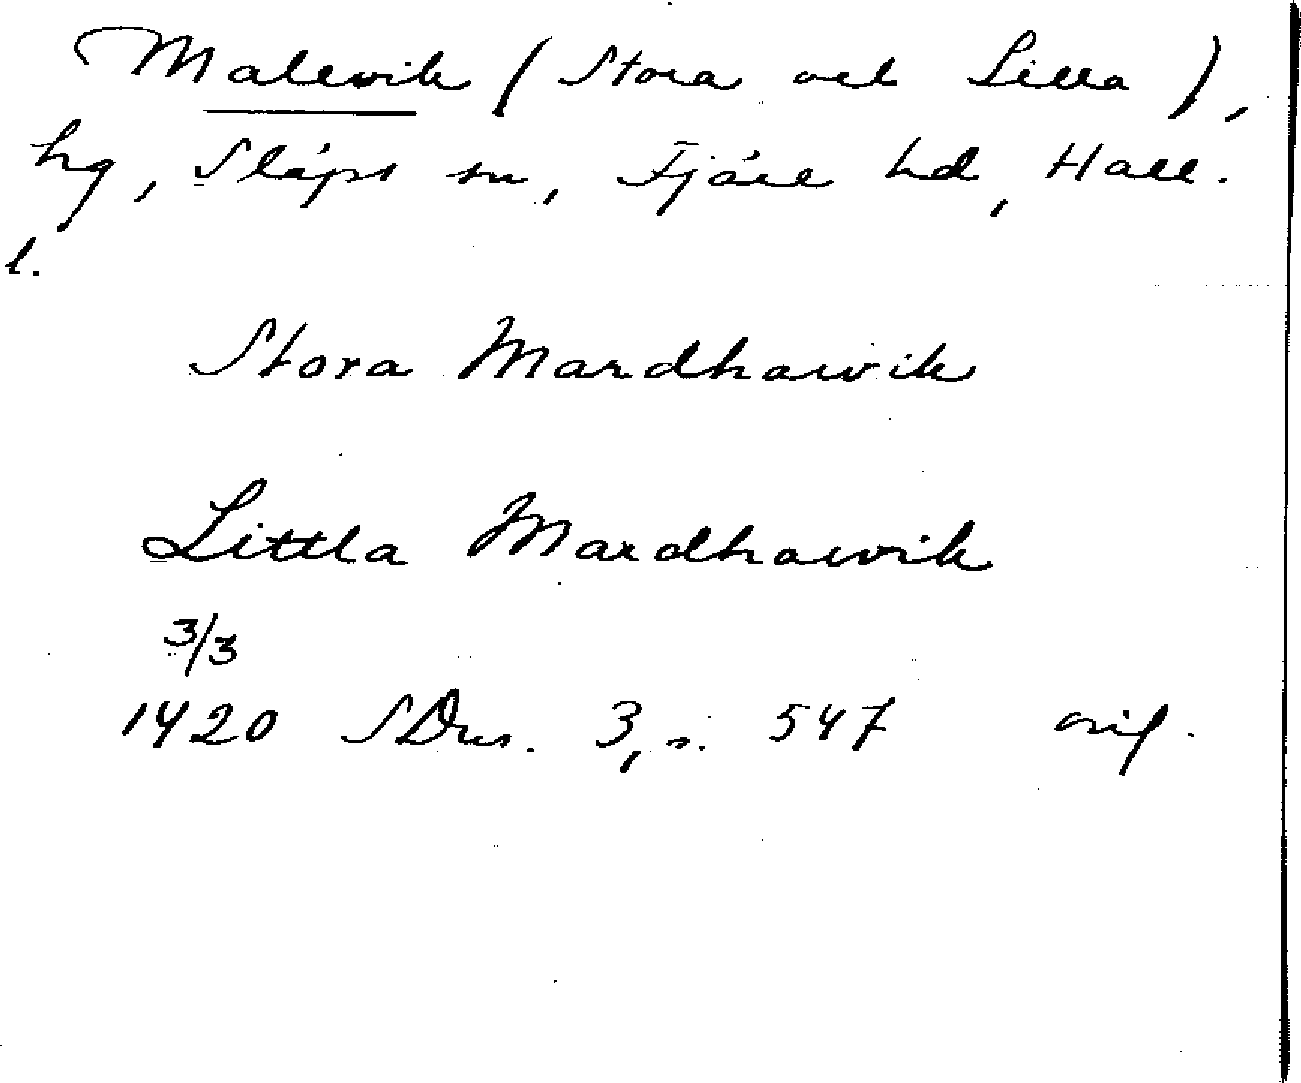 Malevik (Stora och Lilla),
hg, Släps sn, Fjäre hd, Hall.
l.
Stora Mardhawik
Littla Mardhawik
3/3
1420 SDns. 3, s. 547 orig.